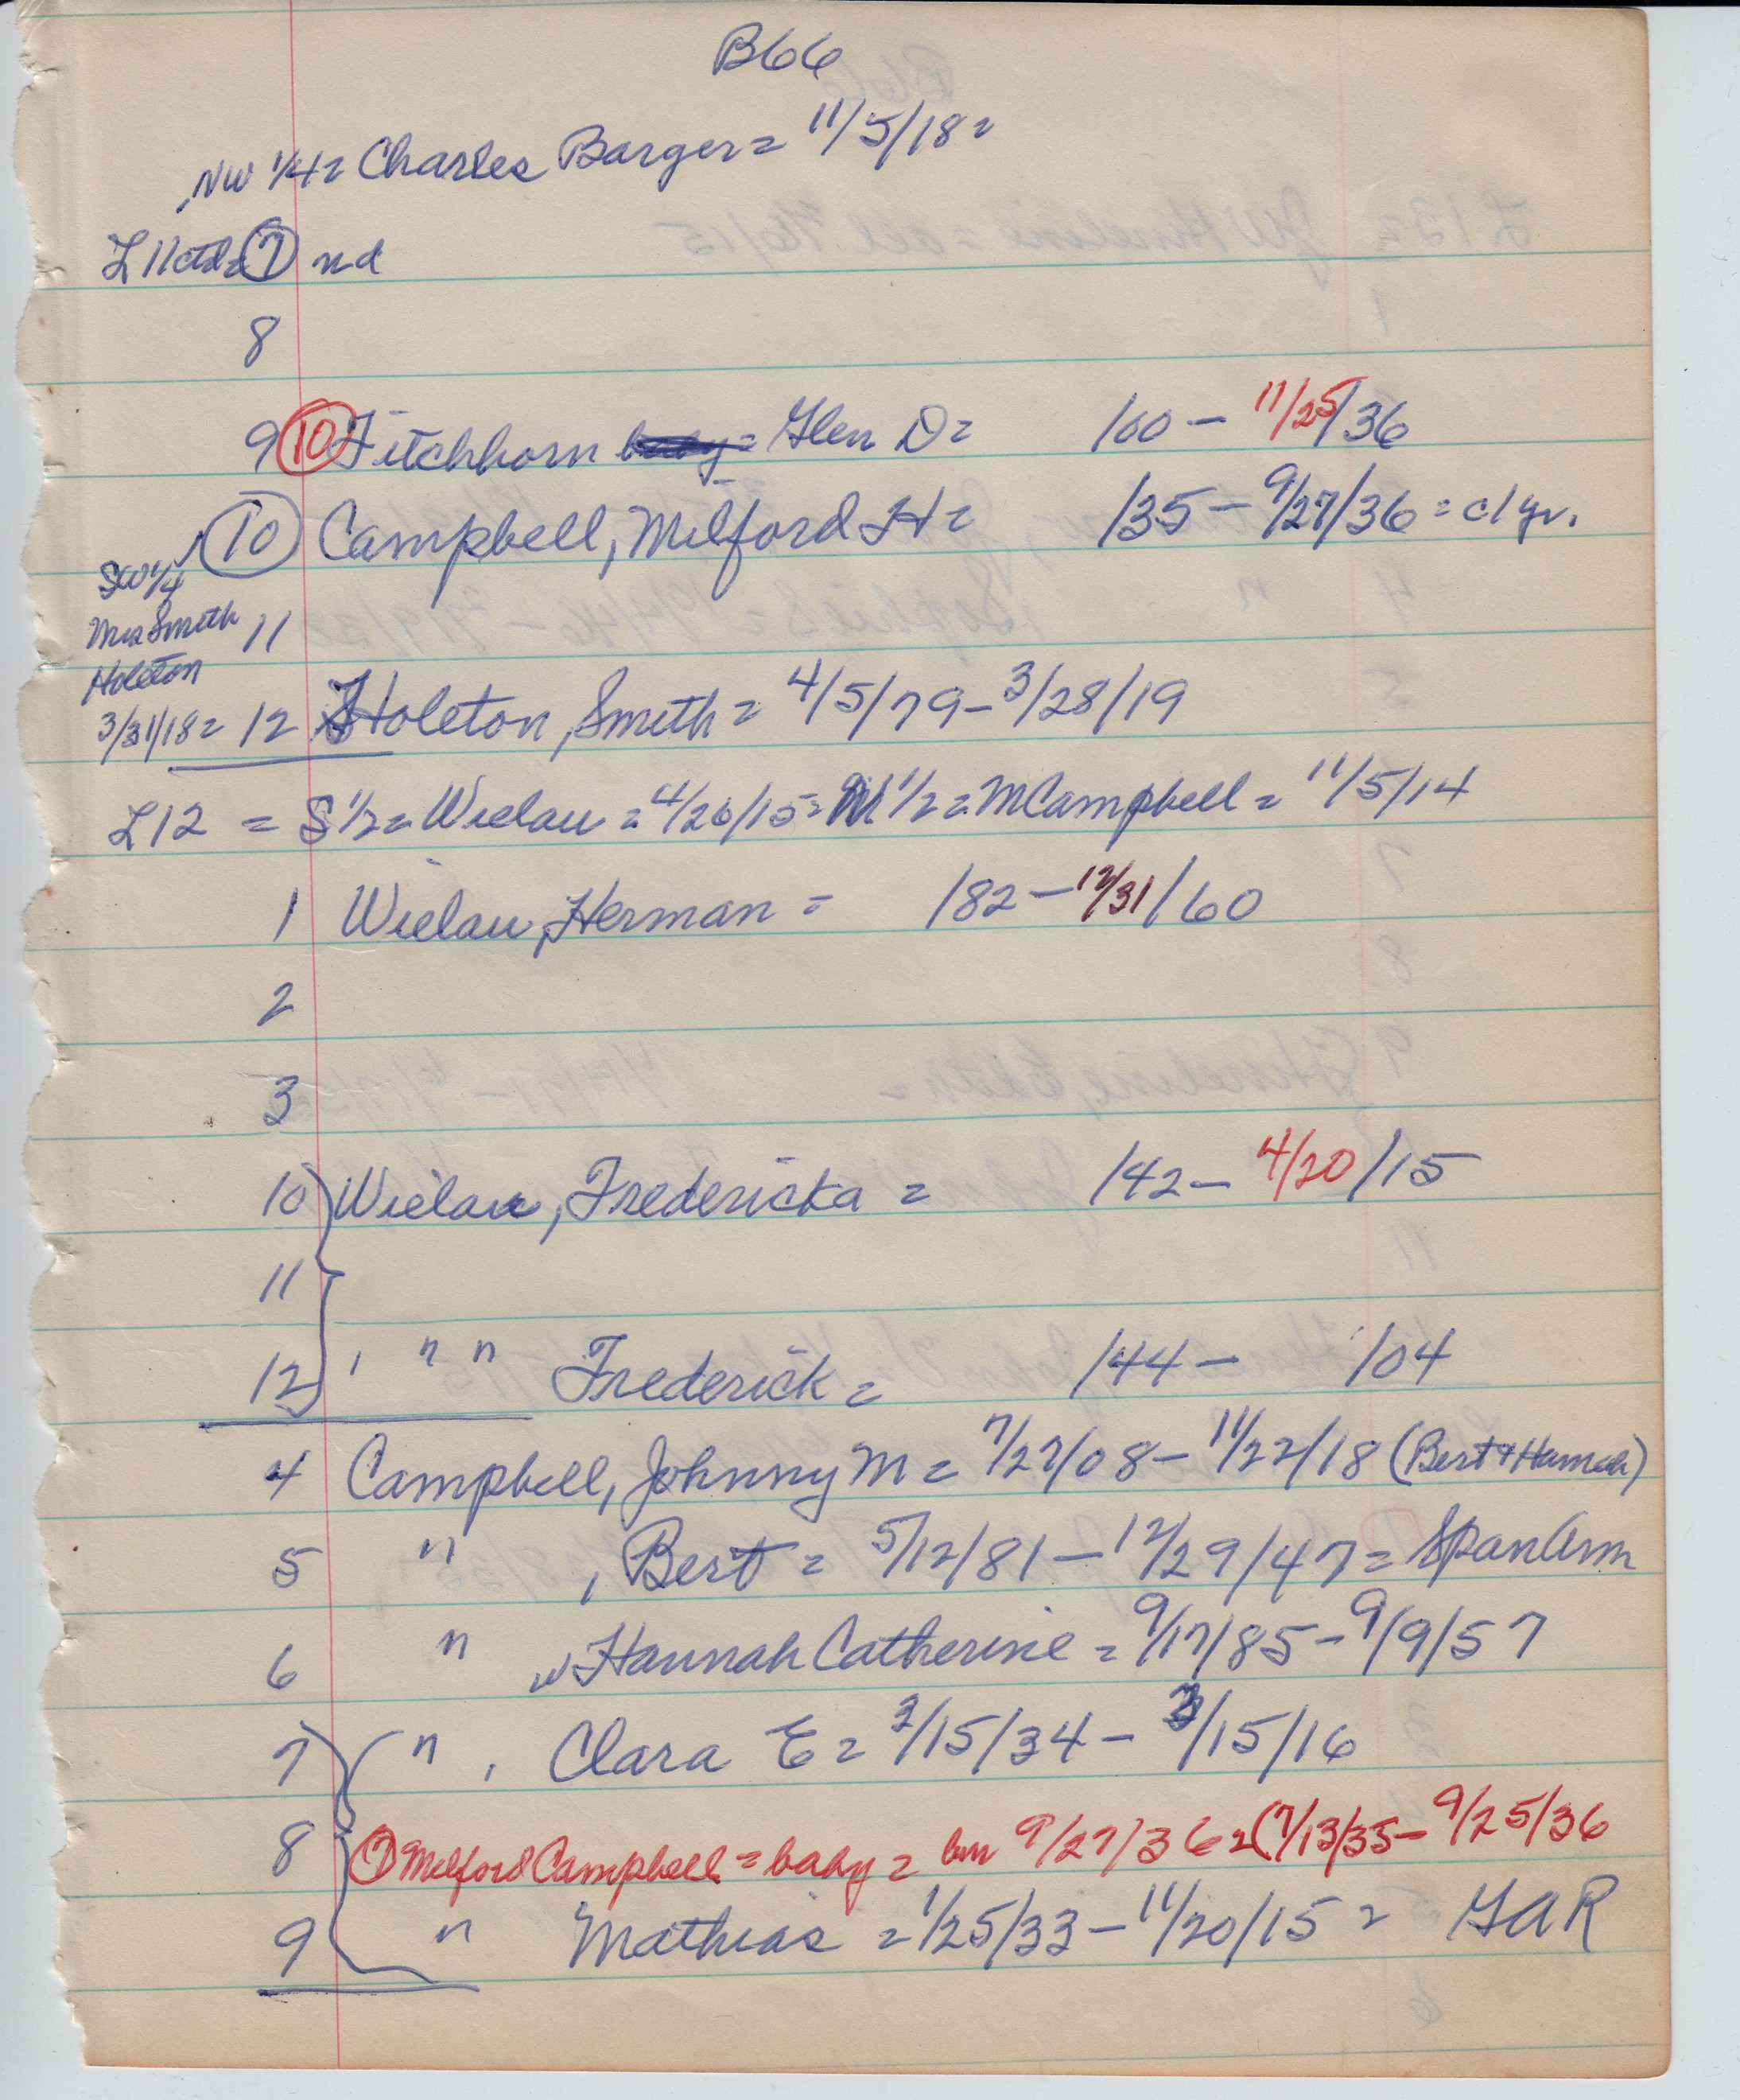 B66
NW 1/4 = Charles Barger = 11/5/18 =
L 11 ctd = 7 nd
8
9 10 Fitchhorn baby = Glen D = /00 - 11/25/36
10 Campbell, Milford H = /35 - 9/27/36 = c/yr.
SW 1/4
Mrs Smith 11
Holeton
3/31/18 = 12 Holeton, Smith = 4/5/79 - 3/28/19
L12 = S 1/2 = Wielau = 4/26/15 = N 1/2 = M Campbell = 11/5/14
1 Wielau, Herman = /82 - 12/31/60
2
3
10 Wielau, Fredericka = /42 - 4/20/15
11
12 , " " Frederick = /44 - /04
4 Campbell, Johnny M = 7/27/08 - 11/22/18 (Bert + Hannah)
5 " , Bert = 5/12/81 - 12/29/47 = Span Am
6 " w Hannah Catherine = 9/17/85 - 9/9/57
7 " , Clara E = 2/15/34 - 3/15/16
8 7 Milford Campbell = baby = bur 9/27/36 = (7/13/35 - 9/25/36
9 " Mathias = 1/25/33 - 11/20/15 = GAR